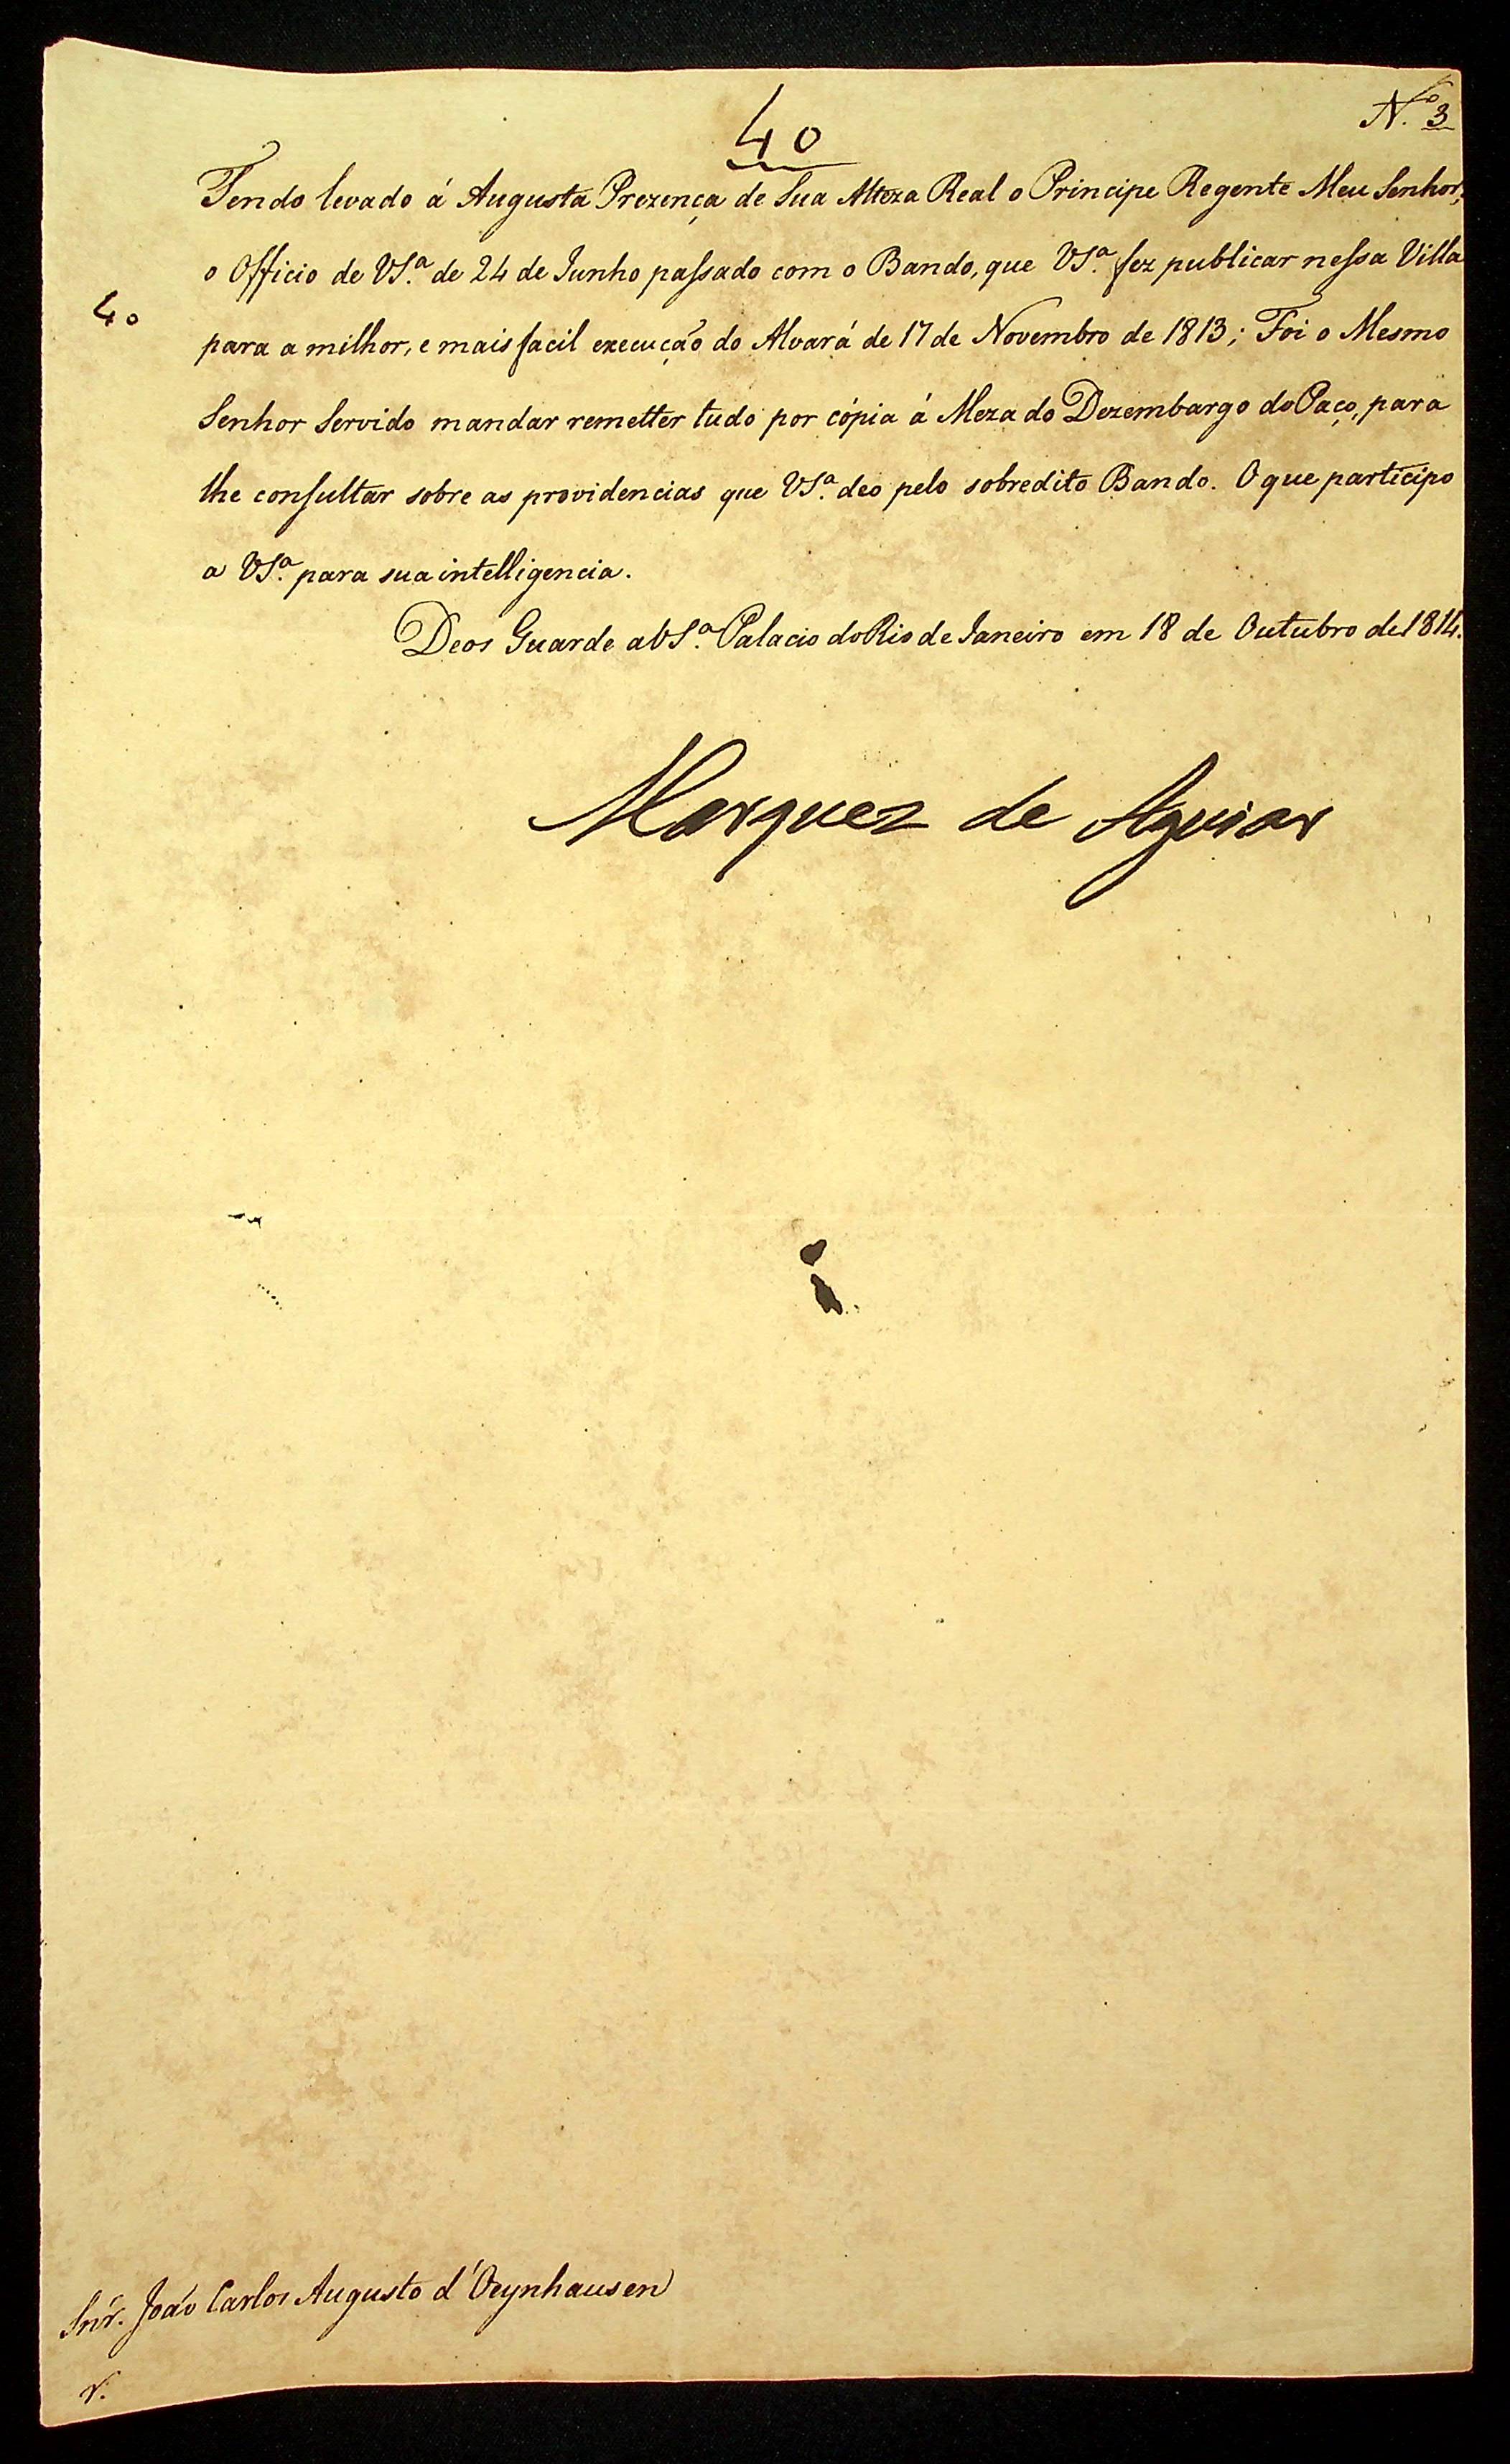 40
N.º 3
Tendo levado á Augusta Prezença de Sua Alteza Real o Principe Regente Meu Senhor,
o Officio de VSª. de 24 de Junho passado com o Bando, que VSª. fez publicar nessa Villa
40
para a milhor, e mais facil execução do Alvará de 17 de Novembro de 1813; Foi o Mesmo
Senhor Servido mandar remetter tudo por cópia á Meza do Dezembargo do Paço, para
lhe consultar sobre as providencias que VSª. deo pelo sobredito Bando. O que participo
a VSª. para sua intelligencia.
Deos Guarde a VSª. Palacio do Rio de Janeiro em 18 de Outubro de 1814.
Marquez de Aguiar
Snr. João Carlos Augusto d'Oeynhausen